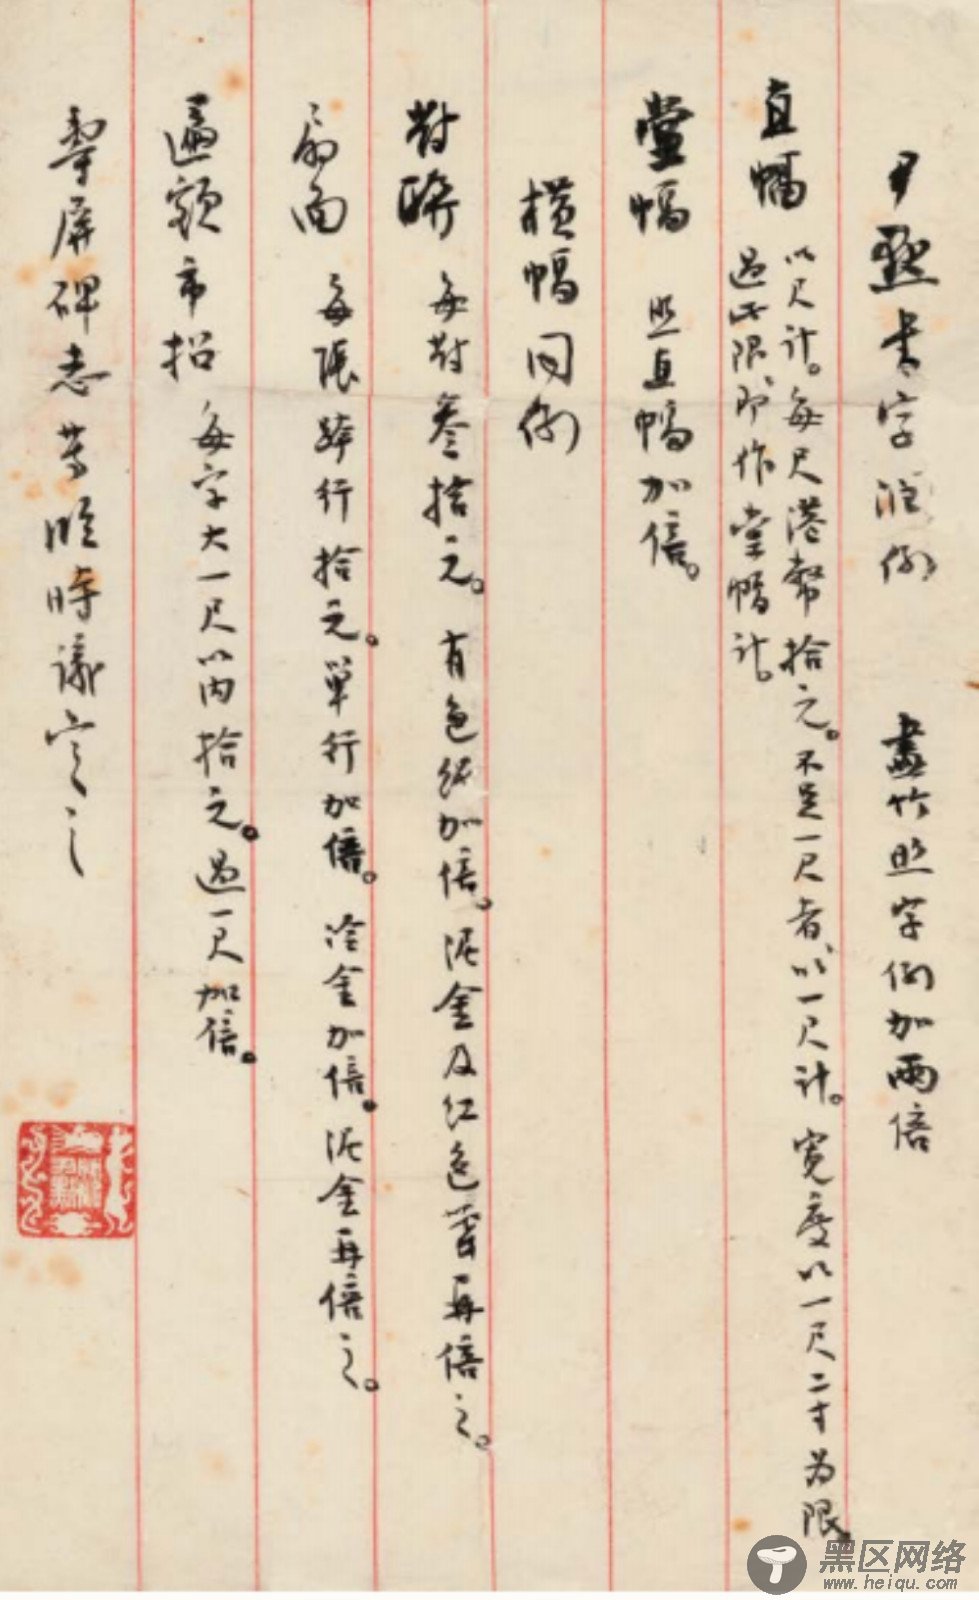 尹默書字潤例　畫竹照字例加兩倍
直幅　以尺计。每尺港幣拾元。不足一尺者、以一尺计。寬度以一尺二寸为限。
過此限、即作堂幅计。
堂幅　照直幅加倍。
横幅同例
對聯　每對叁拾元。有色纸加倍。泥金及红色蜡再倍之。
扇面　每張跨行拾元。單行加倍。冷金加倍。泥金再倍之。
匾額市招　每字大一尺以内拾元。過一尺加倍。
壽屏碑志等臨時議定之
黑区网络
www.heiqu.com